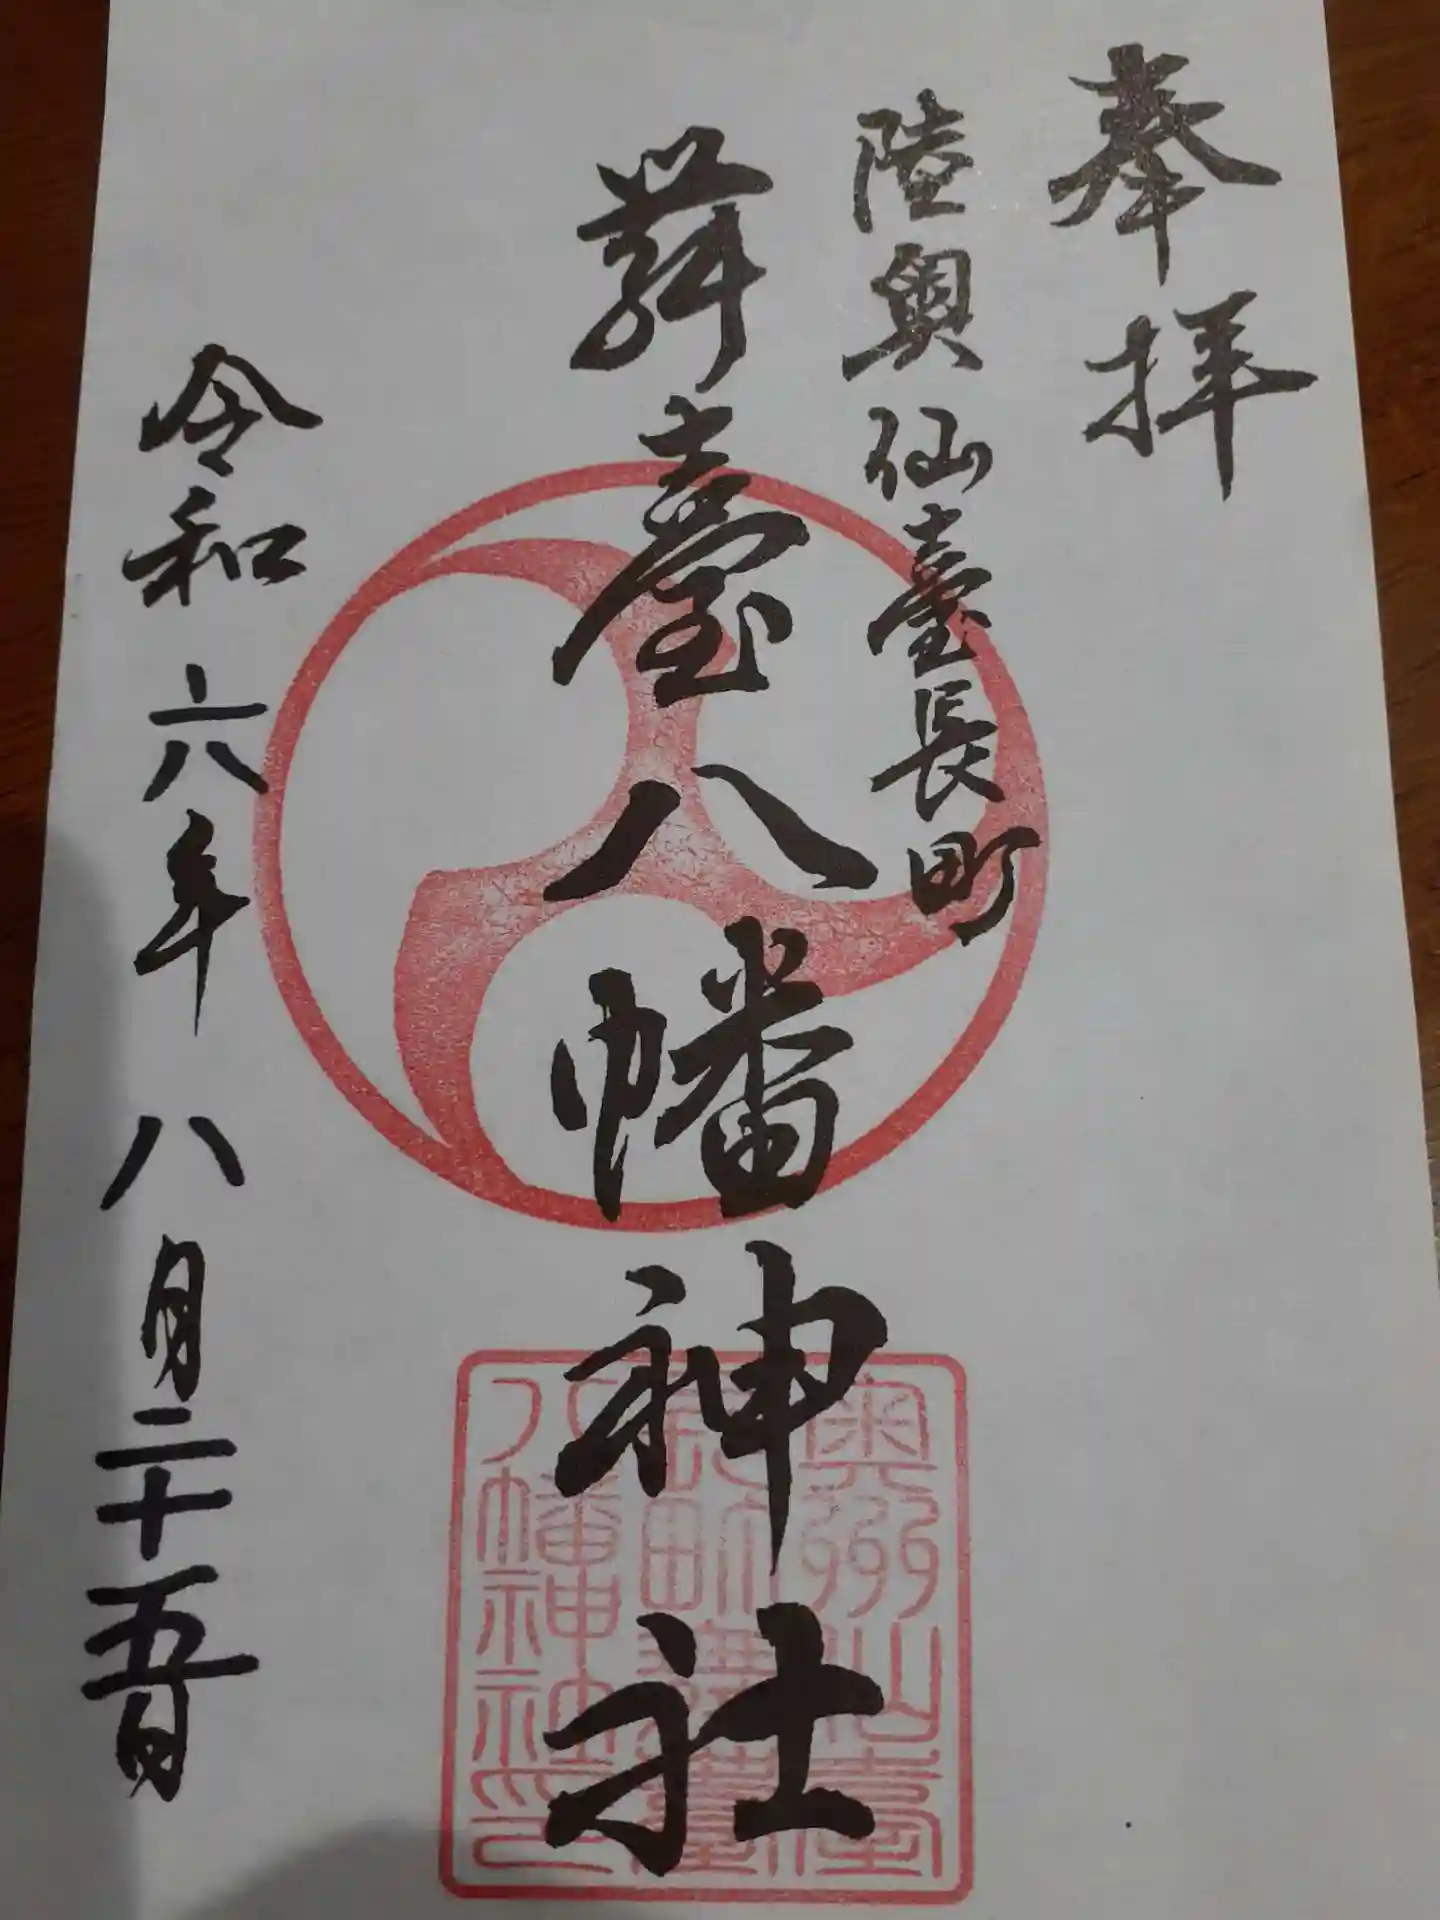 奉拝
陸奥仙臺長町
舞臺八幡神社
令和六年八月二十五日
奥州仙臺
長町舞臺
八幡神社印